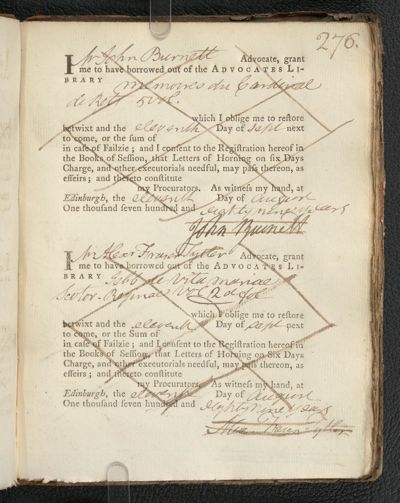 276.
I Mr John Burnett Advocate, grant
me to have borrowed out of the ADVOCATES LI-
BRARY Memoires du Cardinal
de Retz 5 vol.
which I oblige me to restore
betwixt and the eleventh Day of Sept next
to come, or the sum of
in case of Failzie; and I consent to the Registration hereof in
the Books of Session, that Letters of Horning on six Days
Charge, and other executorials needful, may pass thereon, as
effeirs; and thereto constitute
my Procurators. As witness my hand, at
Edinburgh, the eleventh Day of August
One thousand seven hundred and eighty nine years
John Burnett
I Mr Alexr Fraser Tytler Advocate, grant
me to have borrowed out of the ADVOCATES LI-
BRARY Jebb de vita Mariae
Scotor. Reginae Vol 2
which I oblige me to restore
betwixt and the eleventh Day of Sept next
to come, or the Sum of
in case of Failzie; and I consent to the Registration hereof in
the Books of Session, that Letters of Horning on Six Days
Charge, and other executorials needful, may pass thereon, as
effeirs; and thereto constitute
my Procurators. As witness my hand, at
Edinburgh, the eleventh Day of August
One thousand seven hundred and eighty nine years
Alexr Fraser Tytler